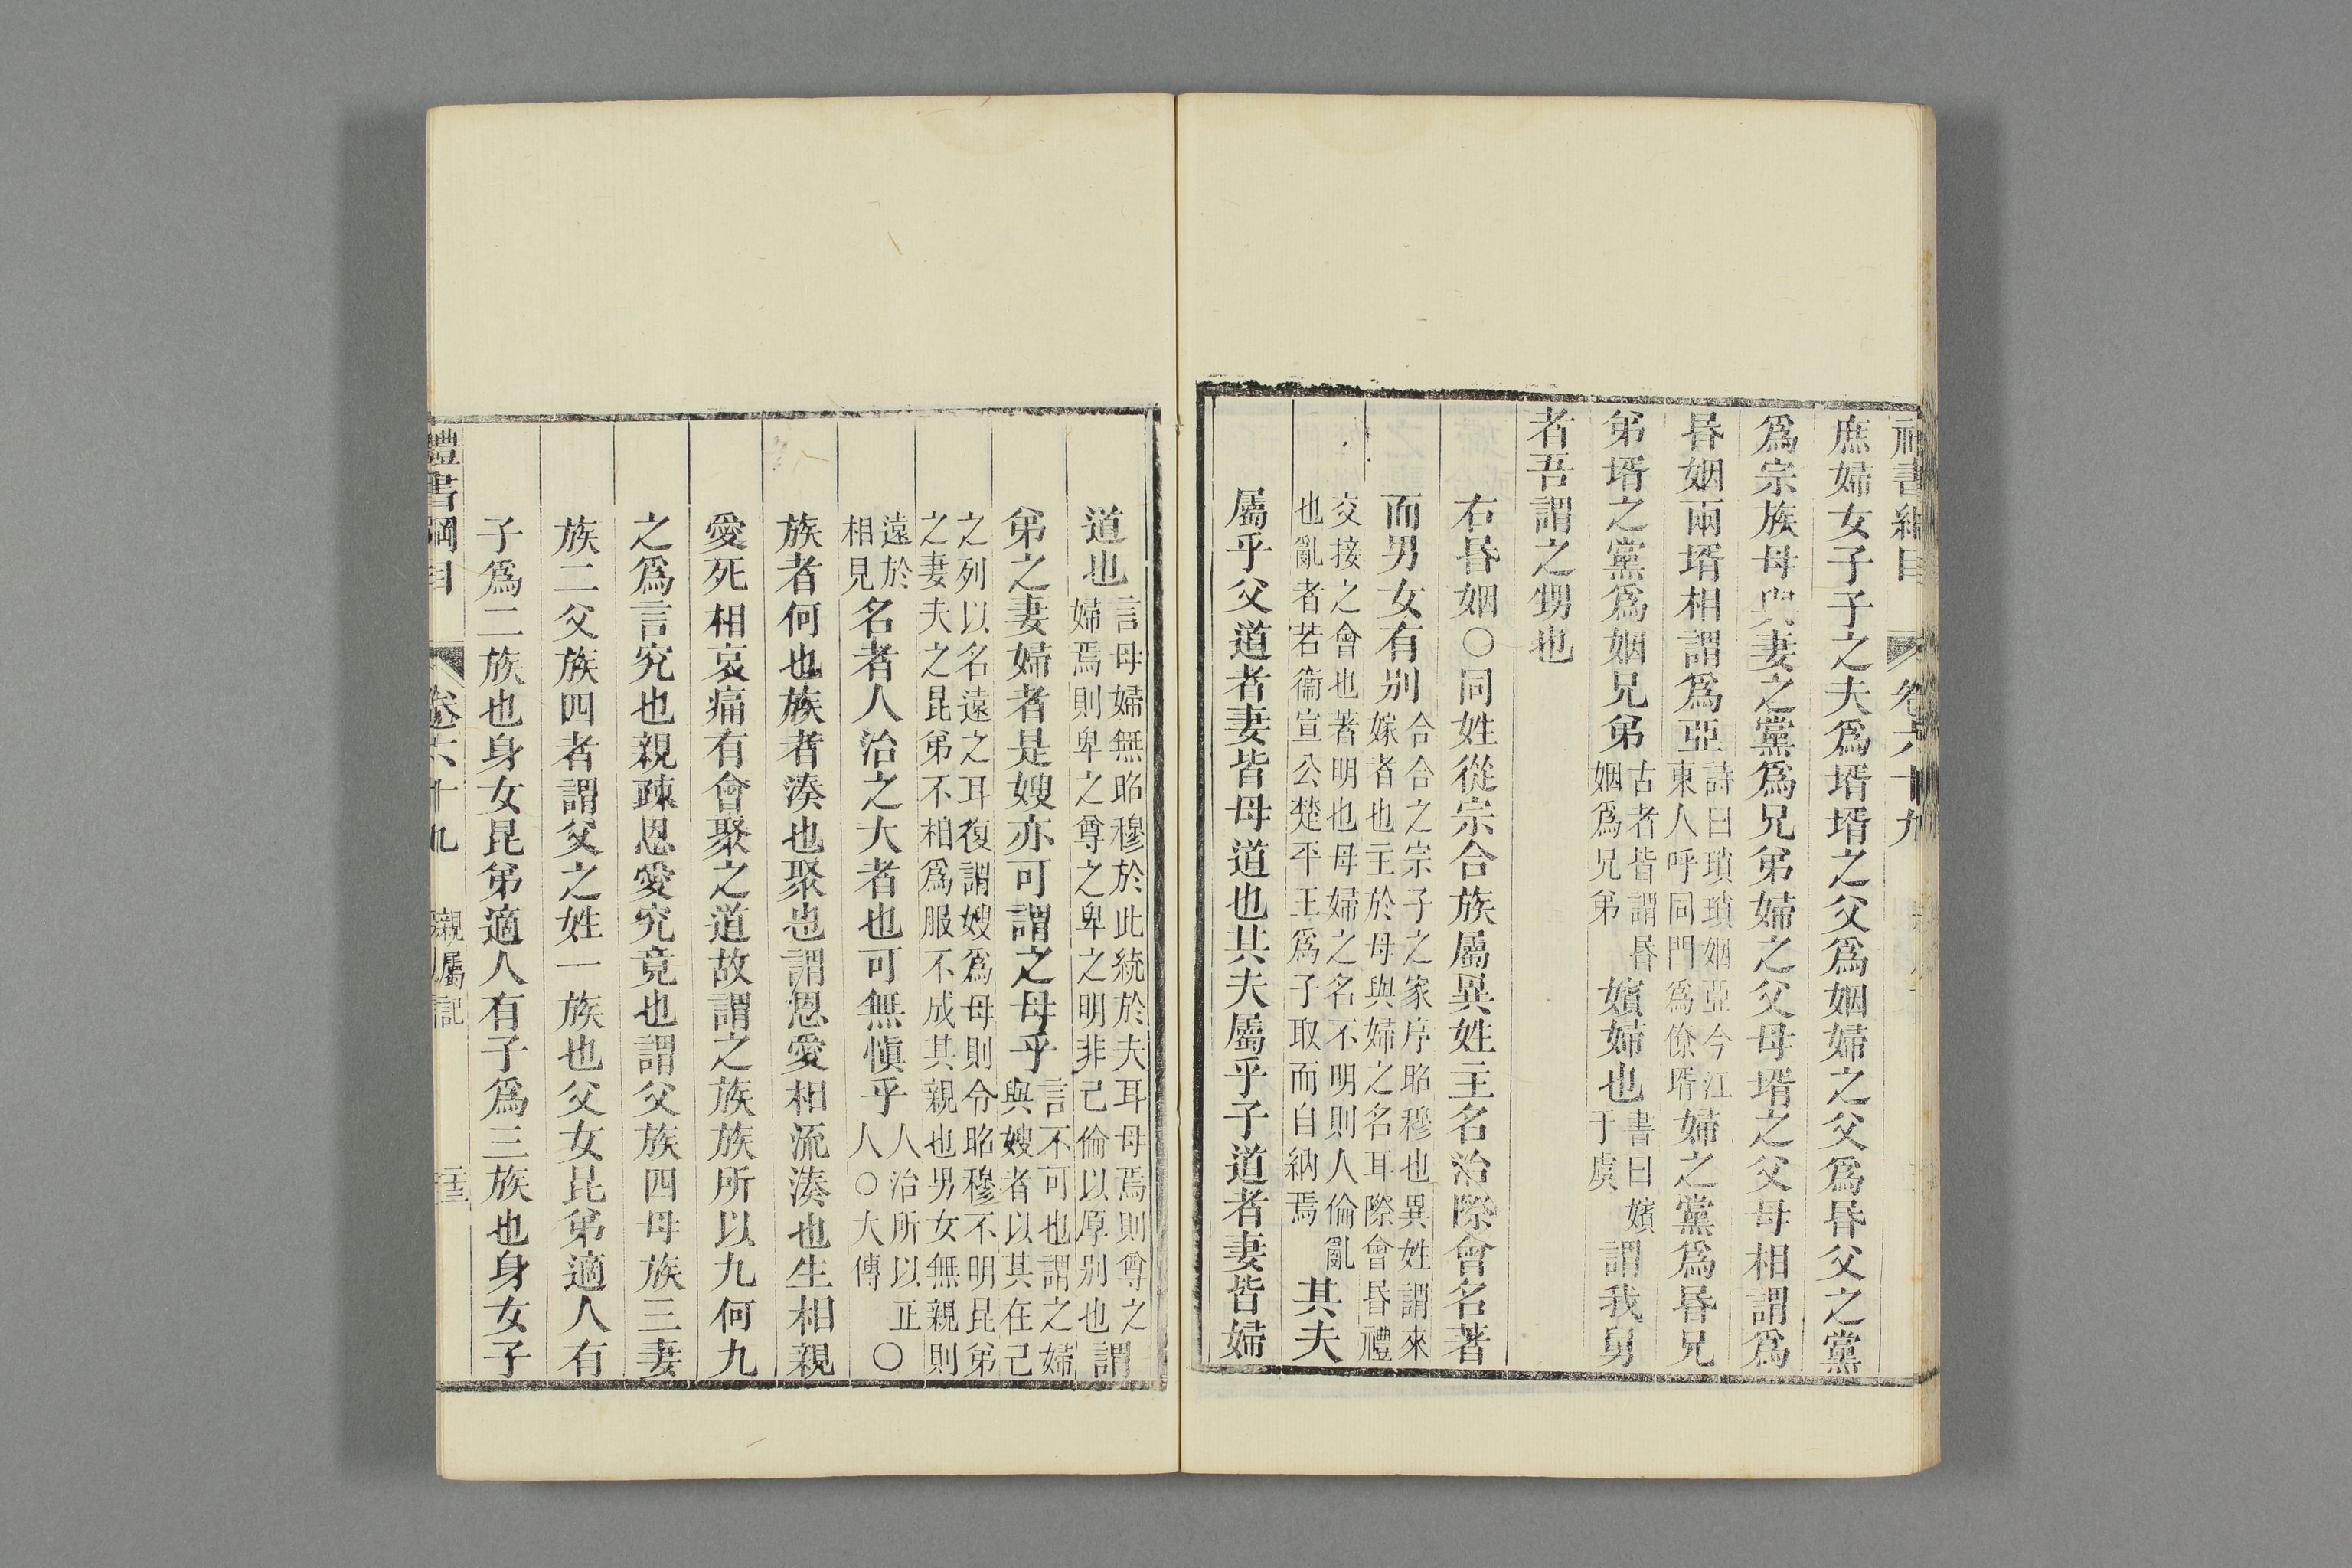 庶婦女子子之夫爲壻壻之父爲姻婦之父爲昏父之黨
爲宗族母與妻之黨爲兄弟婦之父母壻之父母相謂爲
昏姻兩壻相謂爲亞詩曰瑣瑣姻亞今江東人呼同門爲僚壻婦之黨爲昏兄
弟壻之黨爲姻兄弟古者皆謂昏姻爲兄弟嬪婦也書曰嬪于虞謂我舅
者吾謂之甥也
右昏姻○同姓從宗合族屬異姓主名治際會名著
而男女有別合合之宗子之家序昭穆也異姓謂來嫁者也主於母與婦之名耳際會昏禮
交接之會也著明也母婦之名不明則人倫亂也亂者若衞宣公楚平王爲子取而自納焉其夫
屬乎父道者妻皆母道也其夫屬乎子道者妻皆婦
道也言母婦無昭穆於此統於夫耳母焉則尊之婦焉則卑之尊之卑之明非己倫以厚別也謂
弟之妻婦者是嫂亦可謂之母乎言不可也謂之婦與嫂者以其在己
之列以名遠之耳復謂嫂爲母則令昭穆不明昆弟之妻夫之昆弟不相爲服不成其親也男女無親則
遠於相見名者人治之大者也可無愼乎人治所以正人○大傳○
族者何也族者湊也聚也謂恩愛相流湊也生相親
愛死相哀痛有會聚之道故謂之族族所以九何九
之爲言究也親疎恩愛究竟也謂父族四母族三妻
族二父族四者謂父之姓一族也父女昆弟適人有
子爲二族也身女昆弟適人有子爲三族也身女子
禮書綱目 卷六十九 親屬記